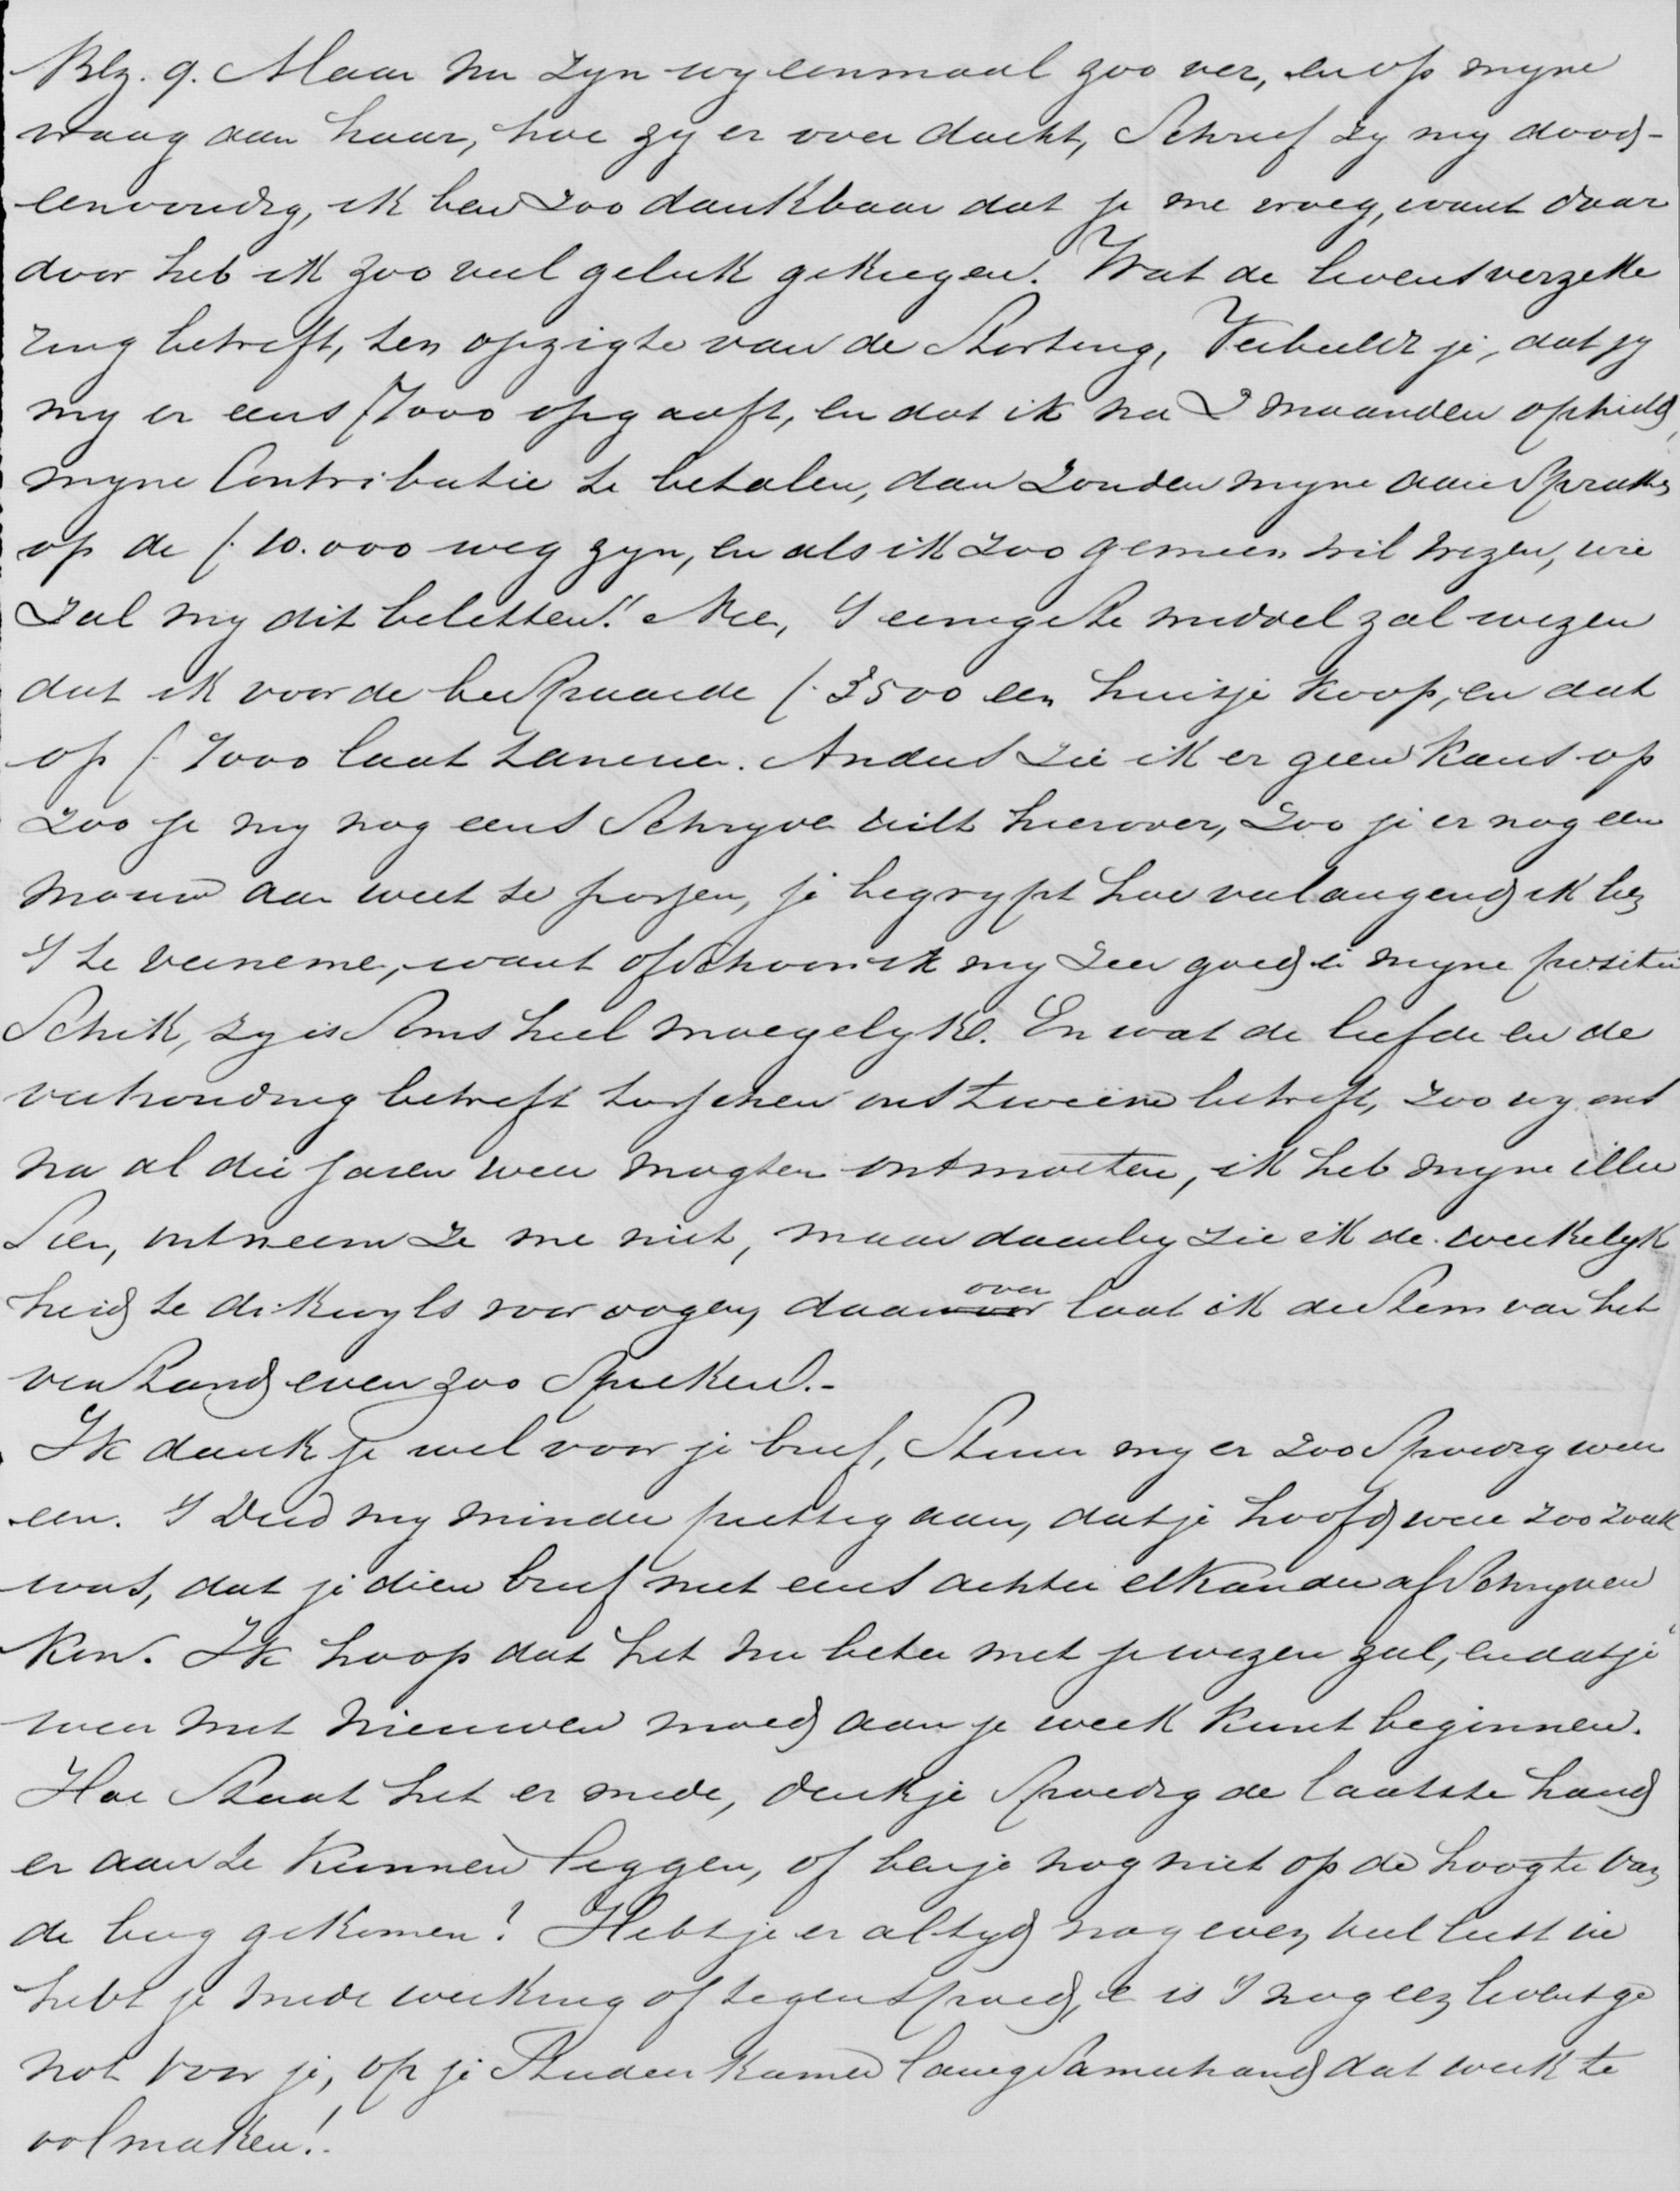 Blz. 9. Maar nu zyn wy eenmaal zoo ver, en op myne
vraag aan haar, hoe zy er over dacht, Schreef zy my dood-
eenvoudig, ik ben zoo dankbaar dat je me vroeg, want daar
door heb ik zoo veel geluk gekregen. Wat de levensverzeke
ring betreft, ten opzigte van de Storting, Verbeeld je, dat jy
my er eens f 7000 op gaaft, en dat ik na 2 maanden ophield,
myne Contributie te betalen, dan zouden myne aanspraken
op de f. 10.000 weg zyn, en als ik zoo gemeen wil wezen, wie
zal my dit beletten! Nee, 't eenigste middel zal wezen
dat ik voor de bespaarde f. 3500 een huisje koop, en dat
op f. 7000 laat taxeren. Anders zie ik er geen kans op
zoo je my nog eens Schryve wilt hierover, zoo je er nog een
mouw aan weet te passen, je begrypt hoe verlangend ik ben
't te verneme, want ofschoon ik my zeer goed in myne positie
Schik, zy is Soms heel moeyelyk. En wat de liefde en de
verhouding betreft tusschen ons tweeën betreft, zoo wy ons
na al die jaren weer mogten ontmoeten, ik heb myne illu
Sien, ontneem ze me niet, maar daarby zie ik de werkelyk
heid te dikwyls voor oogen, daarover laat ik de Stem van het
verstand even zoo Spreken.-
Ik dank je wel voor je brief, Stuur my er zoo Spoedig weer
een. 't Deed my minder prettig aan, dat je hoofd weer zoo zwak
was, dat je dien brief niet eens achter elkander afschryven
kon. Ik hoop dat het nu beter met je wezen zal, en dat je
weer met nieuwen moed aan je werk kunt beginnen.
Hoe Staat het er mede, denk je Spoedig de laatste hand
er aan te kunnen leggen, of ben je nog niet op de hoogte van
de berg gekomen? Hebt je er altyd nog even veel lust in
hebt je mede werking of tegenspoed, e is 't nog een levensge
not voor je, op je Studeerkamer langzamerhand dat werk te
volmaken!.